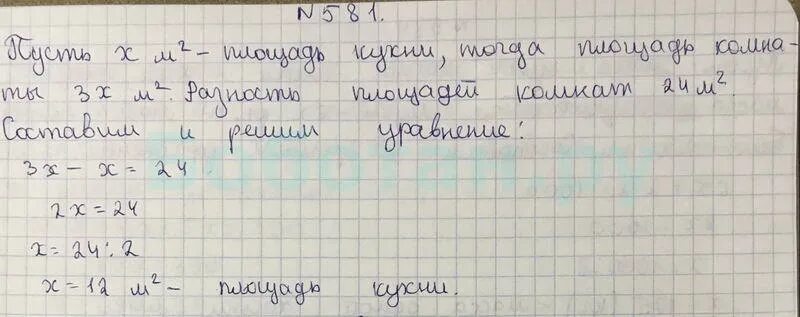 N581.
Пусть x м² – площадь кухни, тогда площадь комна-
ты 3x м². Разность площадей комнат 24 м².
Составим и решим уравнение:
3x – x = 24
2x = 24
x = 24 : 2
x = 12 м² – площадь кухни.